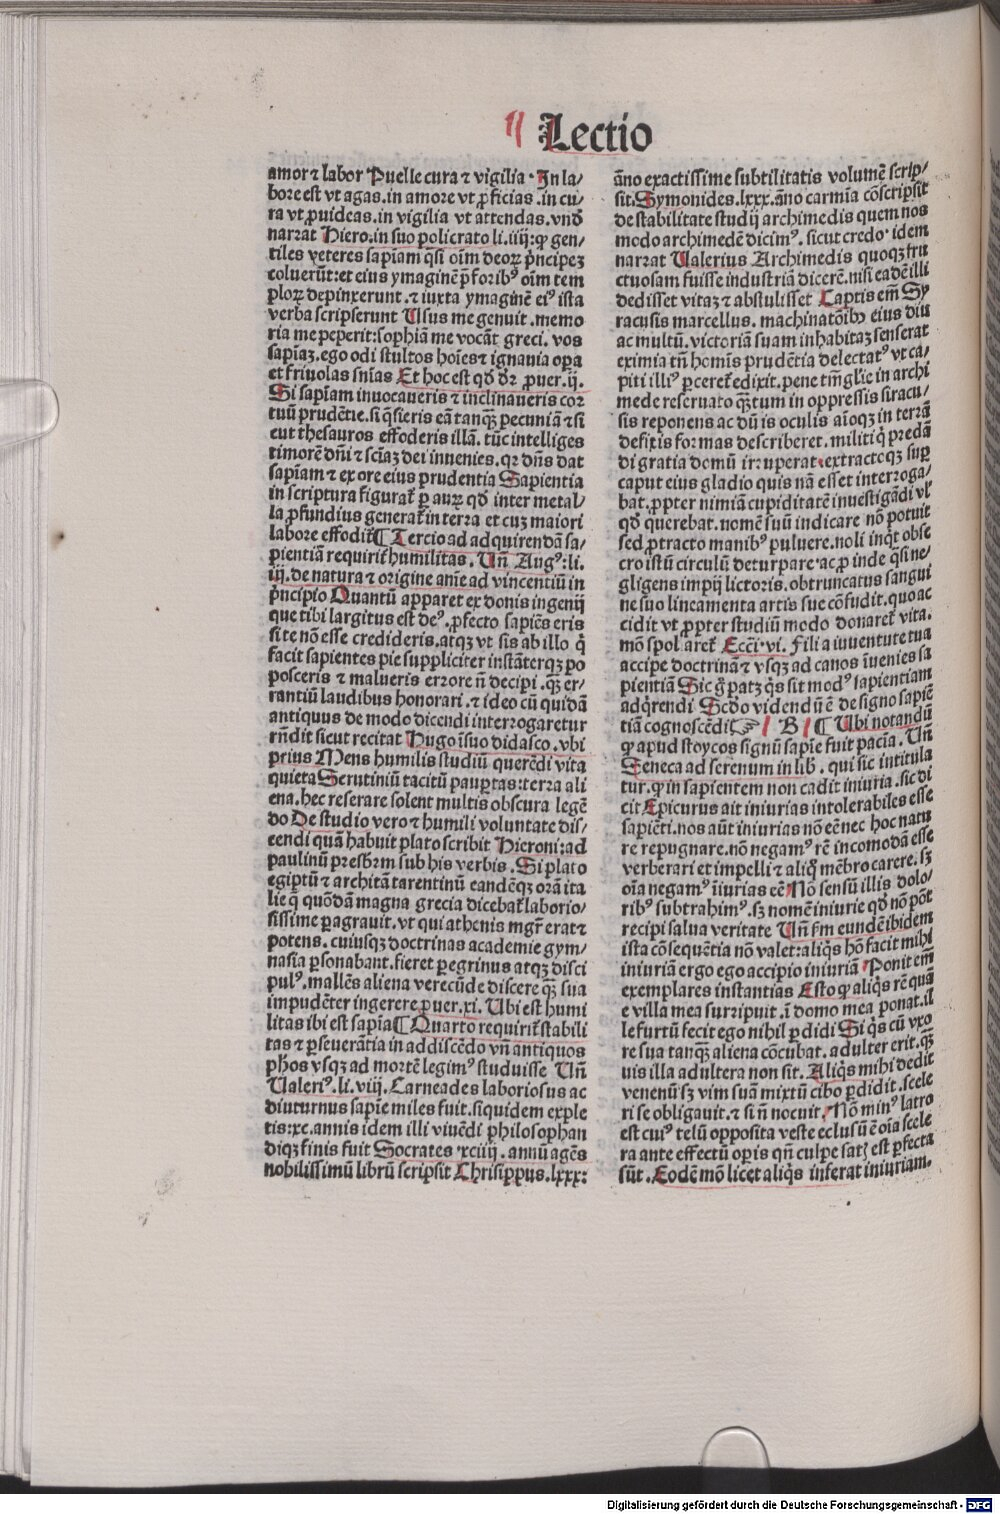 Lectio
amor ⁊ labor Puelle cura ⁊ vigilia · In la⸗
bore est vt agas. in amore vt ꝓficias. in cu⸗
ra vt ꝓuideas. in vigilia vt attendas. vnd̄
narrat Hiero: in suo policrato li. iiij: ꝙ gen⸗
tiles veteres sapiam q̄si oīm deoꝝ p̄ncipeꝫ
coluerūt: et eius ymaginē p̄ foribꝰ oīm tem
ploꝝ depinxerunt. ⁊ iuxta ymaginē eiꝰ ista
verba scripserunt Usus me genuit. memo
ria me peperit: sophiā me vocāt greci. vos
sapiaꝫ. ego odi stultos hoīes ⁊ ignauia oꝑa
et friuolas sn̄ias Et hoc est qd̄ dꝛ ꝓuer. ij.
Si sapiam inuocaueris ⁊ inclinaueris cor
tuū prudētie. si q̄sieris eā tanqꝫ pecuniā ⁊ si
cut thesauros effoderis illā. tūc intelliges
timorē dn̄i ⁊ scīaꝫ dei inuenies. qꝛ dn̄s dat
sapiam ⁊ ex ore eius prudentia Sapientia
in scriptura figurat̄ ꝑ auꝝ qd̄ inter metal⸗
la ꝓfundius generat̄ in terra et cuꝫ maiori
labore effodit̄ ¶ Tercio ad adquirendā sa⸗
pientiā requirit̄ humilitas. Un̄ Augꝰ: li.
iij. de natura ⁊ origine anīe ad vincentiū in
p̄ncipio Quantū apparet ex donis ingenij
que tibi largitus est deꝰ. ꝓfecto sapiēs eris
si te nō esse credideris. atqꝫ vt sis ab illo q̄
facit sapientes pie suppliciter instāterqꝫ po
posceris ⁊ malueris errore n̄ decipi. qꝫ er⸗
rantiū laudibus honorari. ⁊ ideo cū quidā
antiquus de modo dicendi interrogaretur
rn̄dit sicut recitat Hugo ī suo didasco. vbi
prius Mens humilis studiū querēdi vita
quieta Scrutiniū tacitū pauꝑtas: terra ali
ena. hec reserare solent multis obscura legē
do De studio vero ⁊ humili voluntate dis⸗
cendi quā habuit plato scribit Hieroni: ad
paulinū presbr̄m sub his verbis. Si plato
egiptū ⁊ architā tarentinū eandēqꝫ orā ita
lie q̄ quōdā magna grecia dicebat̄ laborio⸗
sissime ꝑagrauit. vt qui athenis mgr̄ erat ⁊
potens. cuiusqꝫ doctrinas academie gym⸗
nasia ꝑsonabant. fieret ꝑegrinus atqꝫ disci
pulꝰ. mallēs aliena verecūde discere qꝫ sua
impudēter ingerere ꝓuer. xi. Ubi est humi
litas ibi est sapīa ¶ Quarto requirit̄ stabili
tas ⁊ ꝑseuerātia in addiscēdo vn̄ antiquos
phos vsqꝫ ad mortē legimꝰ studuisse Un̄
Ualeriꝰ. li. viij. Carneades laboriosus ac
diuturnus sapīe miles fuit. siquidem exple
tis: xc. annis idem illi viuēdi philosophan
diqꝫ finis fuit Socrates xciiij. annū agēs
nobilissimū librū scripsit Chrisippus. lxxx:
āno exactissime subtilitatis volumē scrip⸗
sit. Symonides. lxxx. āno carmīa cōscripsit
de stabilitate studij archimedis quem nos
modo archimedē dicimꝰ. sicut credo· idem
narrat Ualerius Archimedis quoqꝫ fru
ctuosam fuisse industriā dicerē. nisi eadē illi
dedisset vitaꝫ ⁊ abstulisset Captis em̄ Sy
racusis marcellus. machinatōibꝫ eius diu
ac multū. victoriā suam inhabitaꝫ senserat
eximia tn̄ homīs prudētia delectatꝰ vt ca⸗
piti illiꝰ ꝑceret̄ edixit. pene tm̄ glīe in archi
mede reseruato qꝫtum in oppressis siracu⸗
sis reponens ac dū is oculis aīoqꝫ in terrā
defixis formas describeret. militi q̄ predā
di gratia domū irruperat. extractoqꝫ suꝑ
caput eius gladio quis nā esset interroga⸗
bat. ꝓpter nimiā cupiditatē inuestigādi vl̄
qd̄ querebat. nomē suū indicare nō potuit
sed ꝓtracto manibꝰ puluere. noli inq̄t obse
cro istū circulū deturpare· ac ꝓinde q̄si ne⸗
gligens imperij lictoris. obtruncatus sangui
ne suo lineamenta artis sue cōfudit. quo ac
cidit vt ꝓpter studiū modo donaret̄ vita.
mō spoliaret̄ Ecci. vi. Fili a iuuentute tua
accipe doctrinā ⁊ vsqꝫ ad canos īuenies sa
pientiā Sic g̊ patꝫ q̄s sit modꝰ sapientiam
adq̄rendi Scd̄o videndū ē de signo sapiē
tiā cognoscēdi ☞ B ¶ Ubi notandū
ꝙ apud stoycos signū sapīe fuit pacīa. Un̄
Seneca ad serenum in lib̄. qui sic intitula
tur. ꝙ in sapientem non cadit iniuria. sic di
cit Epicurus ait iniurias intolerabiles esse
sapiēti. nos aūt iniurias nō eē nec hoc natu
re repugnare. nō negamꝰ rē incomodā esse
verberari et impelli ⁊ aliq̄ mēbro carere. sꝫ
oīa negamꝰ īiurias eē Nō sensū illis dolo⸗
ribꝰ subtrahimꝰ. sꝫ nomē iniurie qd̄ nō pōt
recipi salua veritate Un̄ ẜm eundē ibidem
ista cōsequētia nō valet: aliq̄s hō facit mihi
iniuriā ergo ego accipio iniuriā Ponit em̄
exemplares instantias Esto ꝙ aliq̄s rē quā
e villa mea surripuit. ī domo mea ponat. il
le furtū fecit ego nihil ꝑdidi Si q̄s cū vxo
re sua tanqꝫ aliena cōcubat. adulter erit. qꝫ
uis illa adultera non sit. Aliq̄s mihi dedit
venenū sꝫ vim suā mixtū cibo ꝑdidit. scele
ri se obligauit. ⁊ si n̄ nocuit. Nō minꝰ latro
est cuiꝰ telū opposita veste eclusū ē oīa scele
ra ante effectū oꝑis qn̄ culpe satꝫ est ꝑfecta
sūt. Eodē mō licet aliq̄s inferat iniuriam.
Digitalisierung gefördert durch die Deutsche Forschungsgemeinschaft · DFG